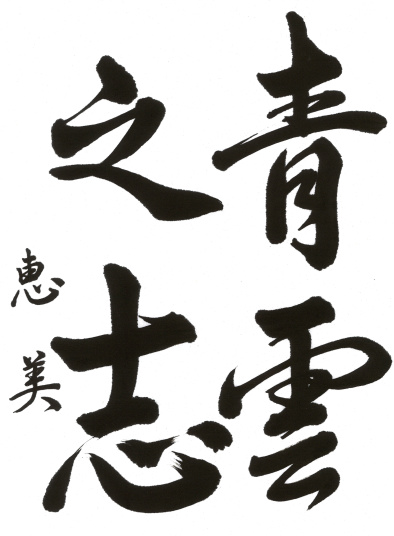 青雲
之志
恵美